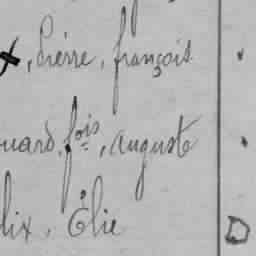 x, Pierre, françois
ouard, fois, auguste
lix, Élie
D